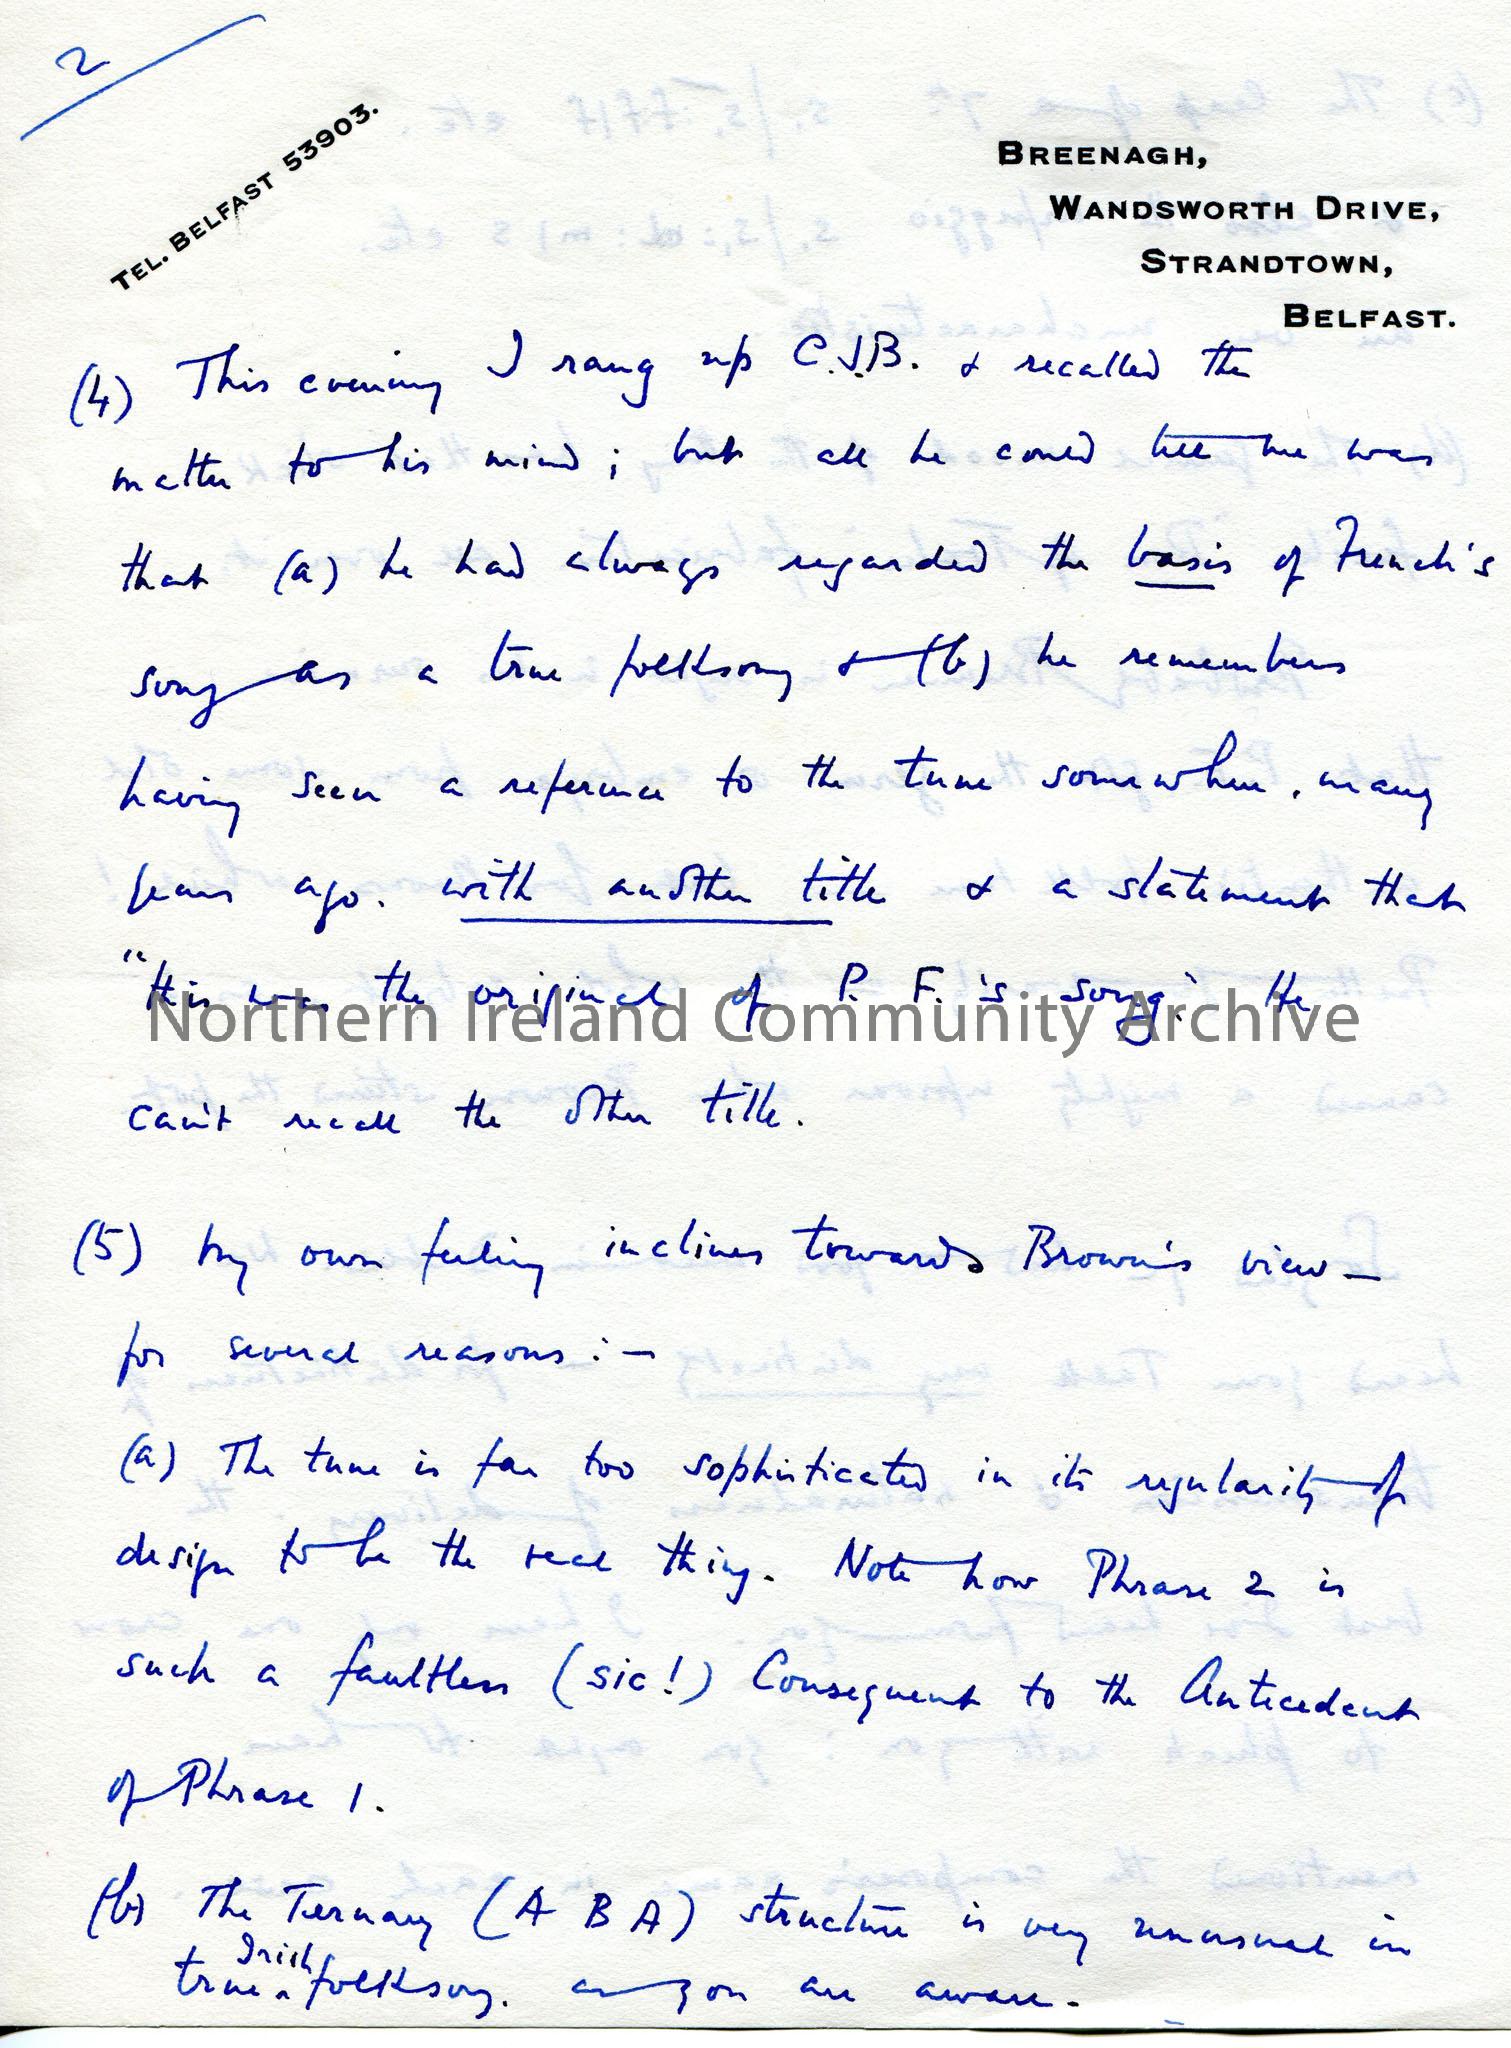 2
TEL. BELFAST 53903.
BREENAGH,
WANDSWORTH DRIVE,
STRANDTOWN,
BELFAST.
(4) This evening I rang up C.J.B. & recalled the
matter to his mind; but all he could tell me was
that (a) he had always regarded the basis of French's
song as a true folksong & (b) he remembers
having seen a reference to the tune somewhere, many
years ago, with another title & a statement that
"this was the original of P. F.'s song". He
can't recall the other title.
(5) My own feeling inclines towards Brown's view —
for several reasons :—
(a) The tune is far too sophisticated in its regularity of
design to be the real thing. Note how Phrase 2 is
such a faultless (sic!) Consequent to the Antecedent
of Phrase 1.
(b) The Ternary (A B A) structure is very unusual in
true Irish folksong, as you are aware.
Northern Ireland Community Archive